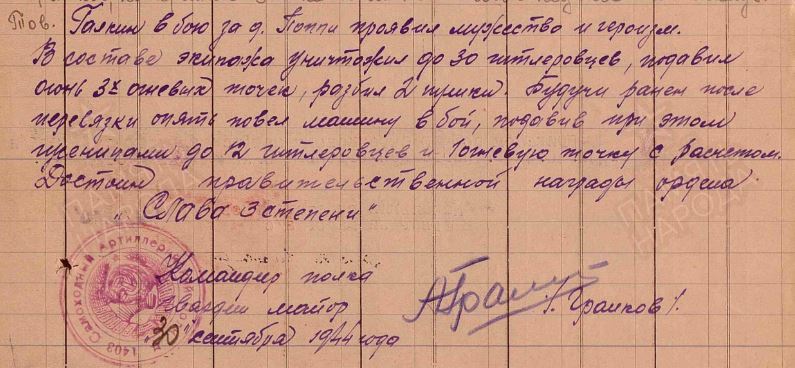 Тов. Галкин в бою за д. Поппи проявил мужество и героизм.
В составе экипажа уничтожил до 30 гитлеровцев, подавил
огонь 3х огневых точек, разбил 2 пушки. Будучи ранен после
перевязки опять повел машину в бой, подавив при этом
гусеницами до 12 гитлеровцев и 1 огневую точку с расчетом.
Достоин правительственной награды ордена
"Слава 3 степени"
Командир полка
гвардии майор
/Грамков/.
"20" сентября 1944 года
Самоходный Артиллерийский
1403